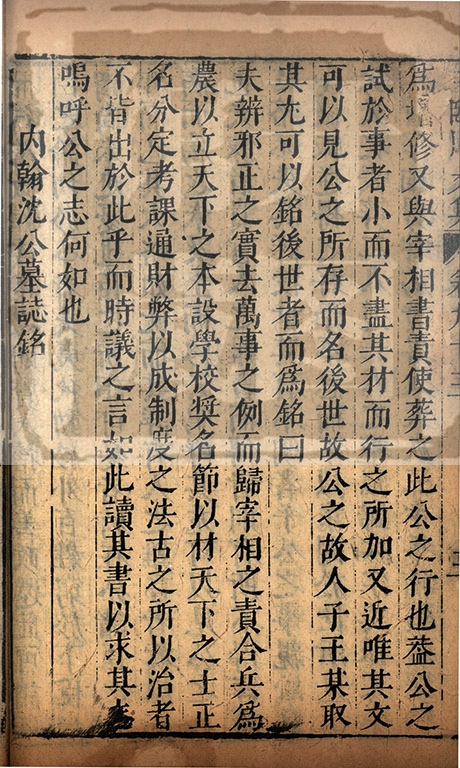 為墻修又與宰相書責使葬之此公之行也葢公之
試於事者小而不盡其材而行之所加又近唯其文
可以見公之所存而名後世故公之故人子王某取
其尤可以銘後世者而爲銘曰
夫辨邪正之實去萬事之例而歸宰相之責合兵爲
農以立天下之本設學校奬名節以材天下之士正
名分定考課通財幣以成制度之法古之所以治者
不皆出於此乎而時議之言如此讀其書以求其志
嗚呼公之志何如也
內翰沈公墓誌銘